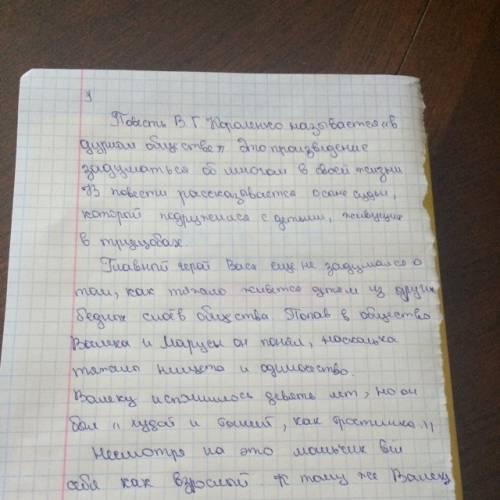 Повесть В. Г. Короленко называется „в
дурном обществе" Это произведение
задуматься об многом в своей жизни
В повести рассказавается о сыне судьи,
которой подружился с детьми, живущие
в трущобах.
Главной герой Вася еще не задумался о
том, как тяжало живется детям из других
бедных слоёв общества Попав в общество
Валека и Маруси он понял, насколька
тяжало нищета и одиночество.
Валеку исполнилось девять лет, но он
был „ худой и тонкей, как тростинка "
Несмотря на это мальчик вёл
себя как взрослой К тому же Валеку